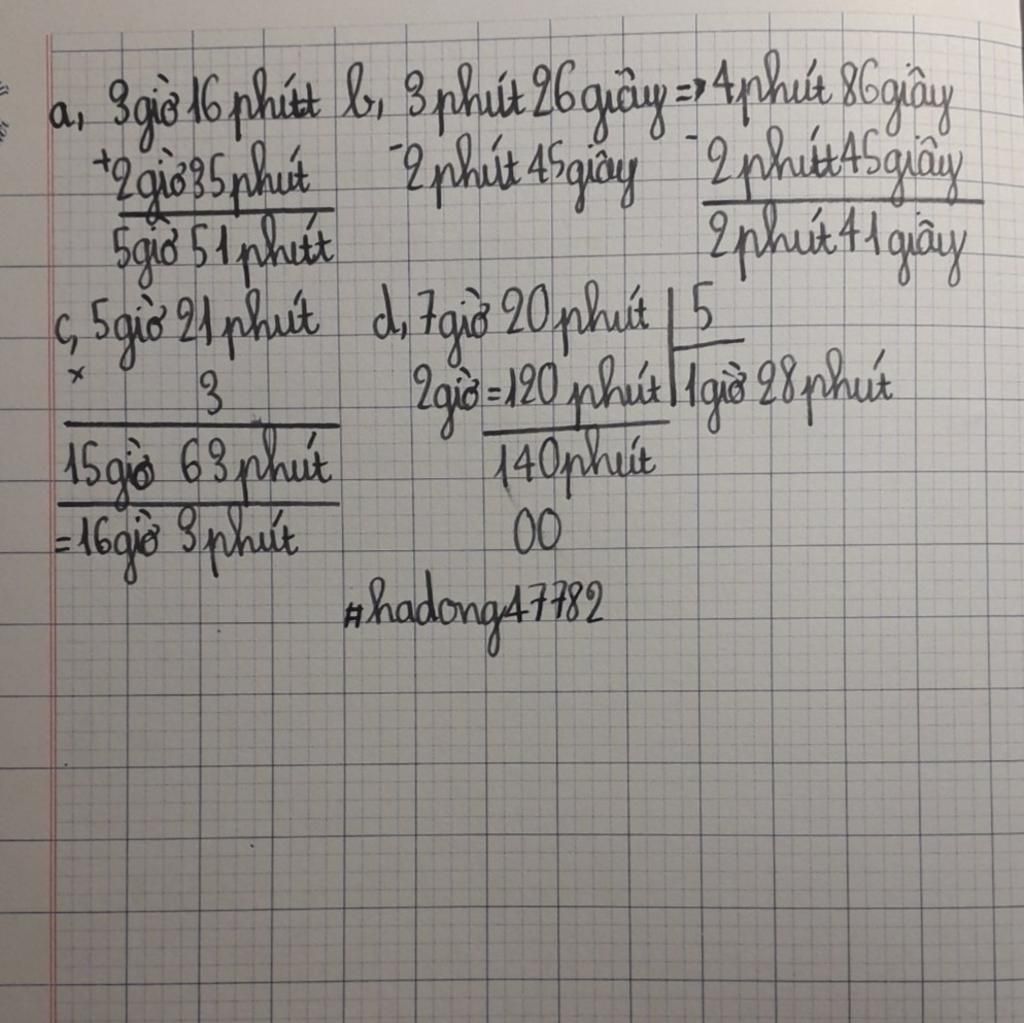 a, 3giờ 16 phút b, 3 phút 26 giây => 4 phút 86 giây
+ 2giờ 35 phút - 2 phút 45 giây - 2 phút 45 giây
5giờ 51 phút 2 phút 41 giây
c, 5giờ 21 phút d, 7giờ 20 phút 5
x 3 2giờ = 120 phút 1giờ 28 phút
15giờ 63 phút 140 phút
= 16giờ 3 phút 00
#hadong47782